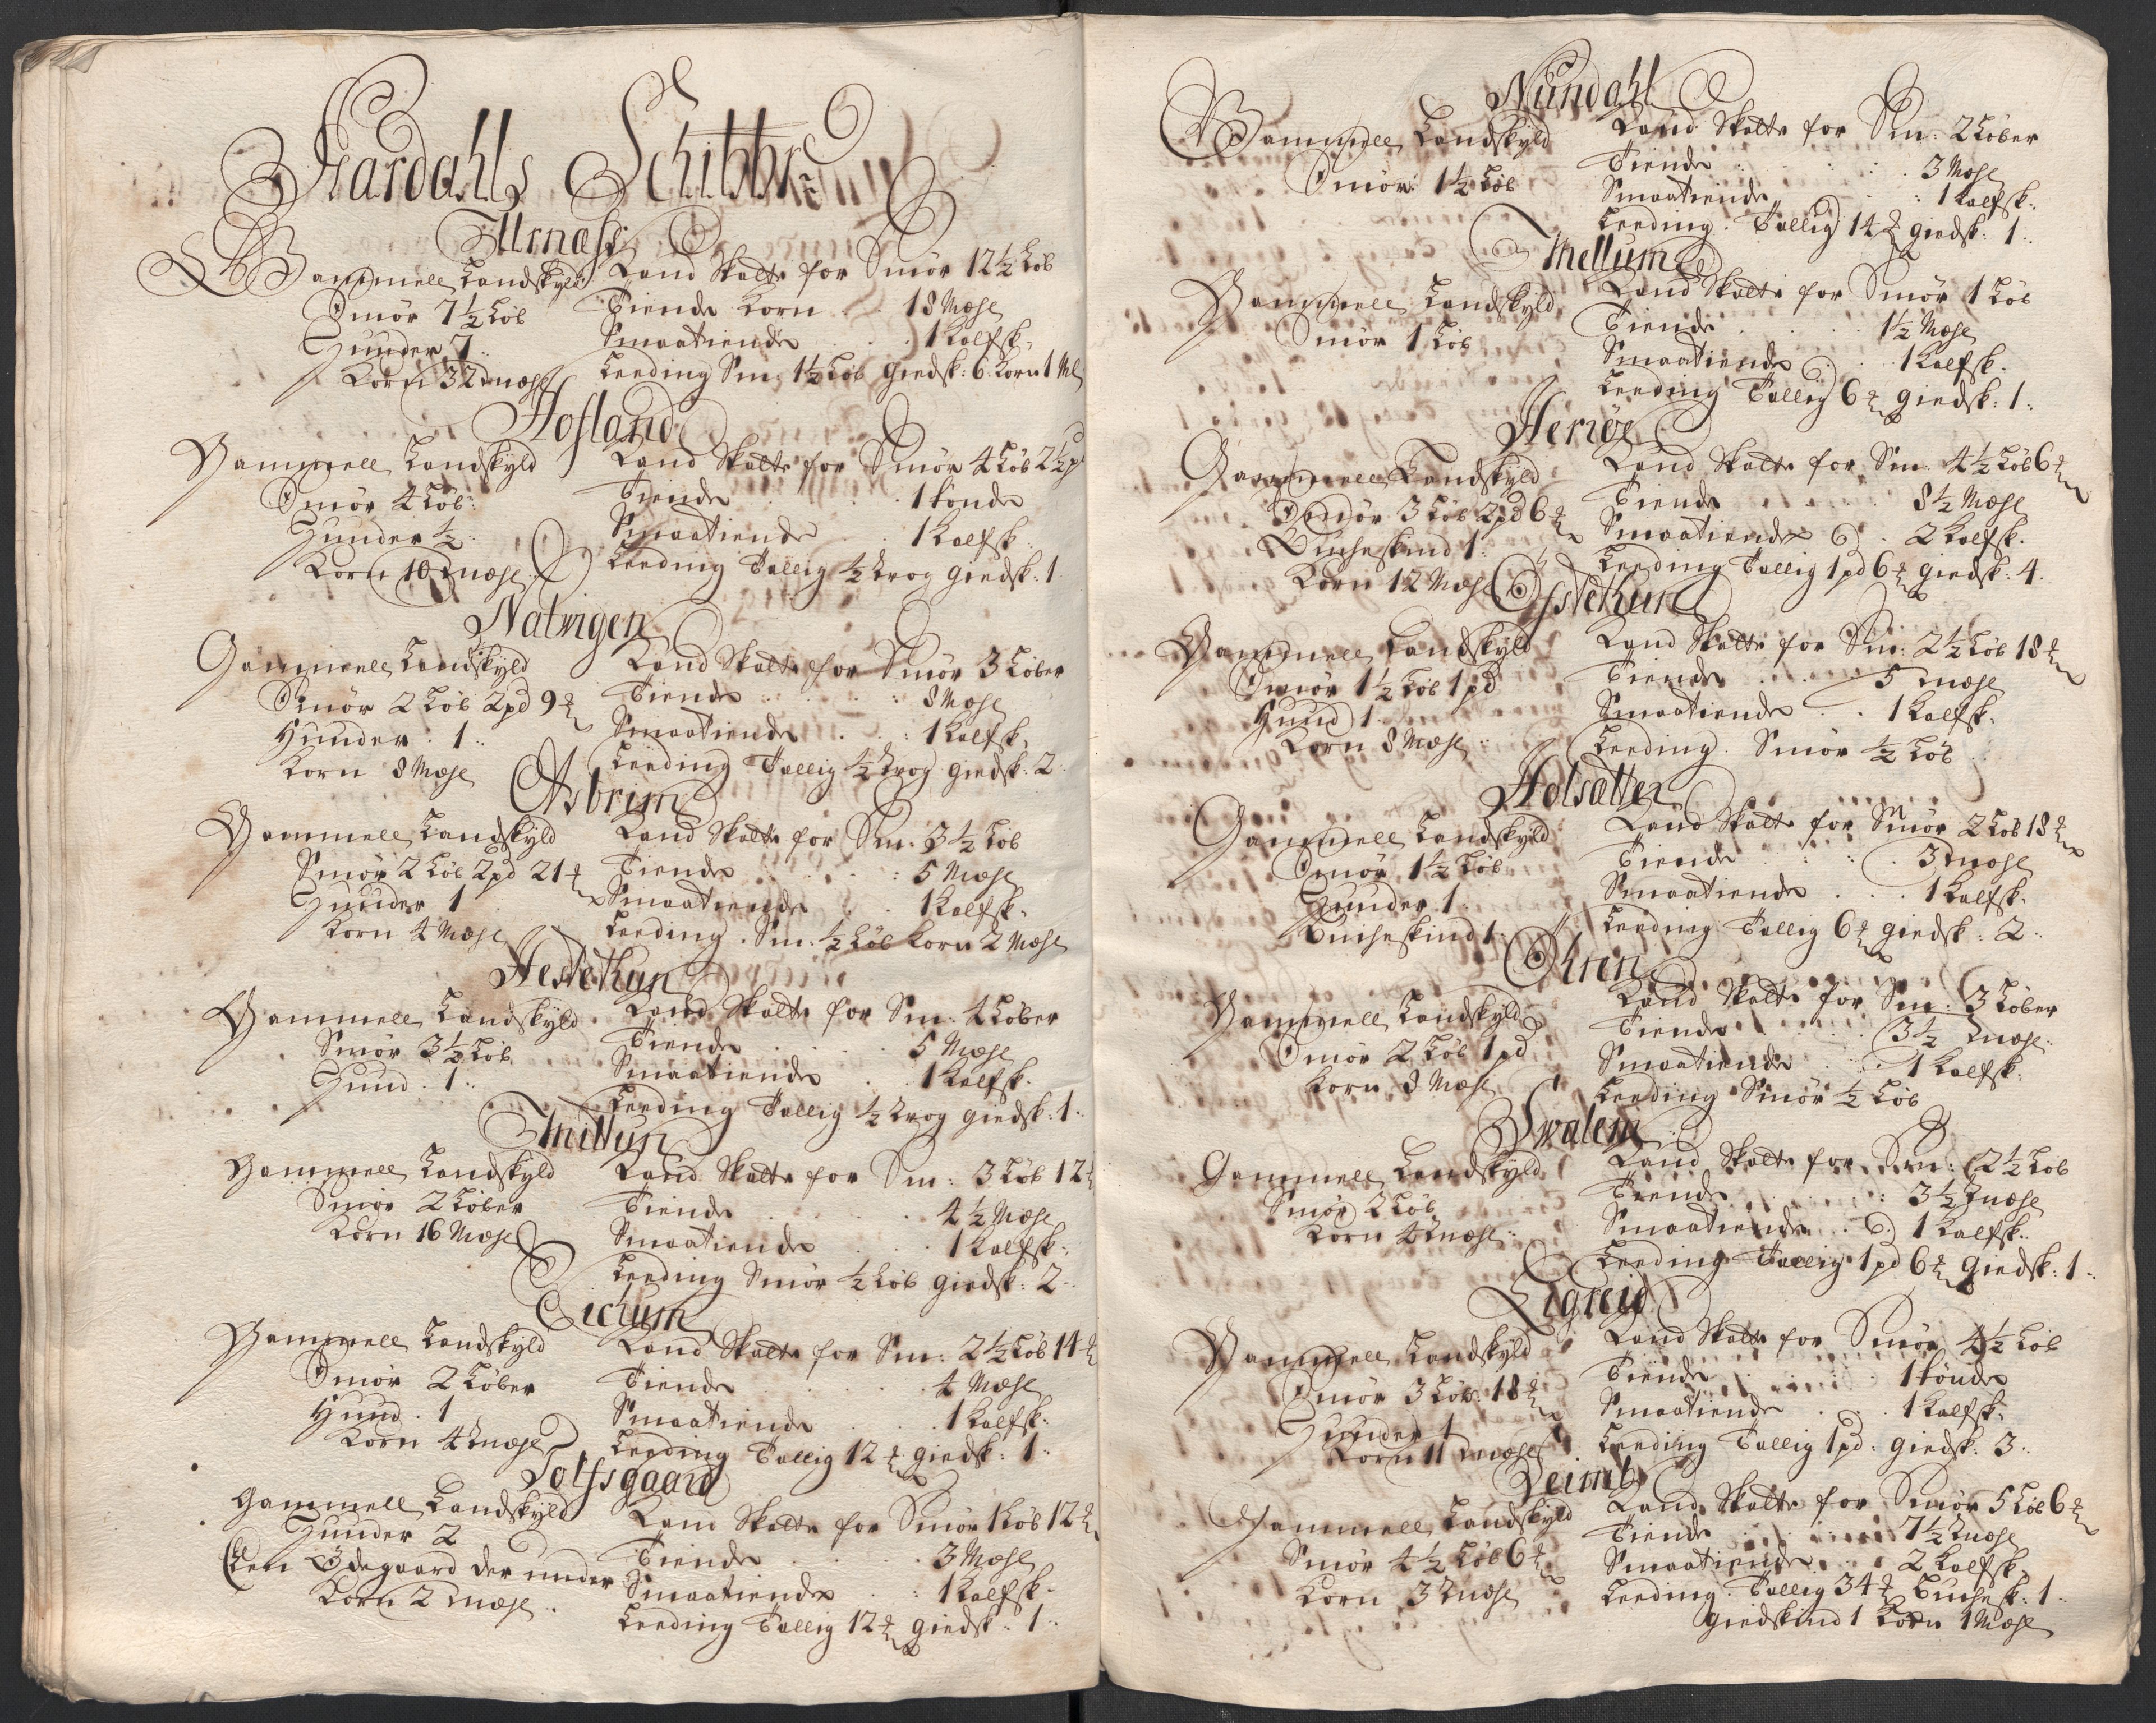 Aardahls Schibbr:
Urnæss
Gammell Landskyld
Smör 7½ Löb
Hunder 7
Korn 32 mæhl
Land Skatt for Smör 12½ Löb
Tiende Korn . . 18 Mæhl
Smaatiende . . . 1 Kalfsk:
Leeding Sm: 1½ Löb giedsk: 6 Korn 1 Ml
Hofland
Gammell Landskyld
Smör 4 Löb:
Hunder ½
Korn 10 mæhl
Land Skatt for Smör 4 Löb 2½ pd
Tiende . . . 1 tönde
Smaatiende . . 1 Kalfsk:
Leeding Tallig ½ Trog giedsk: 1
Natwigen
Gammell Landskyld
Smör 2 Löb 2 pd 9 ℔
Hunder . 1 .
Korn 8 Mæhl
Land Skatt for Smör 3 Löber
Tiende . . . 8 Mæhl
Smaatiende . . . 1 Kalfsk:
Leeding Tallig ½ Trog giedsk: 2
Asbrim
Gammell Landskyld
Smör 2 Löb 2 pd 21 ℔
Hunder 1
Korn 4 Mæhl
Land Skatt for Sm: 3½ Löb
Tiende . . . 5 Mæhl
Smaatiende . . 1 Kalfsk:
Leeding . Sm: ½ Löb Korn 2 Mæhl
Hestethun
Gammell Landskyld
Smör 3½ Löb
Hund . 1 .
Land Skatt for Sm: 4 Löber
Tiende . . . 5 Mæhl
Smaatiende . . 1 Kalfsk:
Leeding Tallig ½ Trog giedsk: 1
Gammell Landskyld
Smör 2 Löber
Korn 16 Mæhl
Land Skatt for Sm: 3 Löb 12 ℔
Tiende . . . 4½ Mæhl
Smaatiende . . 1 Kalfsk:
Leeding Smör ½ Löb giedsk: 2
Eichum
Gammell Landskyld
Smör 2 Löber
Hund . 1
Korn 4 mæhl
Land Skatt for Sm: 2½ Löb 14 ℔
Tiende . . . 4 Mæhl
Smaatiende . . 1 Kalfsk:
Leeding Tallig 12 ℔ giedsk: 1
Tolfsgaard
Gammell Landskyld
Hunder 2
Een Ødegaard der under
Korn 2 mæhl
Land Skatt for Smör 1 Löb 12 ℔
Tiende . . . 3 Mæhl
Smaatiende . . 1 Kalfsk:
Leeding Tallig 12 ℔ giedsk: 1
Nundahl
Gammell Landskyld
Smör: 1½ Löb
Land Skatt for Sm: 2 Löber
Tiende . . . 3 Mæhl
Smaatiende . . 1 Kalfsk:
Leeding . Tallig 14 ℔ giedsk: 1
Mellum
Gammell Landskyld
Smör 1 Löb
Land Skatt for Smör 1 Löb
Tiende . . . 1½ Mæhl
Smaatiende . . 1 Kalfsk:
Leeding Tallig 6 ℔ giedsk: 1
Heriöe
Gammell Landskyld
Smör 3 Löb 2 pd 6 ℔
Bucheskind 1
Korn 12 Mæhl
Land Skatt for Sm: 4½ Löb 6 ℔
Tiende . . . 8½ Mæhl
Smaatiende . 2 Kalfsk:
Leeding Tallig 1 pd 6 ℔ giedsk: 4
Øystethun
Gammell Landskyld
Smör 1½ Löb 1 pd
Hund 1
Korn 8 Mæhl
Land Skatt for Sm: 2½ Löb 18 ℔
Tiende . . . 5 mæhl
Smaatiende . . 1 Kalfsk:
Leeding . Smör ½ Löb
Holsætter
Gammell Landskyld
Smör 1½ Löb
Hunder 1
Bucheskind 1
Land Skatt for Smör 2 Löb 18 ℔
Tiende . . . 3 mæhl
Smaatiende . . 1 Kalfsk:
Leeding Tallig 6 ℔ giedsk: 2
Øhren
Gammell Landskyld
Smör 2 Löb 1 pd
Korn 8 Mæhl
Land Skatt for Sm: 3 Löber
Tiende . . . 3½ mæhl
Smaatiende . . 1 Kalfsk:
Leeding Smör ½ Löb
Swalem
Gammell Landskyld
Smör 2 Löb
Korn 4 mæhl
Land Skatt for Sm: 2½ Löb
Tiende . . . 3½ mæhl
Smaatiende . 1 Kalfsk:
Leeding Tallig 1 pd 6 ℔ giedsk: 1
Eigreid
Gammell Landskyld
Smör 3 Löb: 18 ℔
Hunder 1
Korn 11 mæhl
Land Skatt for Smör 4½ Löb
Tiende . . . 1 tönde
Smaatiende . . 1 Kalfsk:
Leeding Tallig 1 pd: giedsk: 3
Gammell Landskyld
Smör 4½ Löb 6 ℔
Korn 3 mæhl
Land Skatt for Smör 5 Löb 6 ℔
Tiende . . . 7½ mæhl
Smaatiende . . 2 Kalfsk:
Leeding . Tallig 34 ℔ Buchesk: 1
giedskind 1 Korn 1 Mæhl